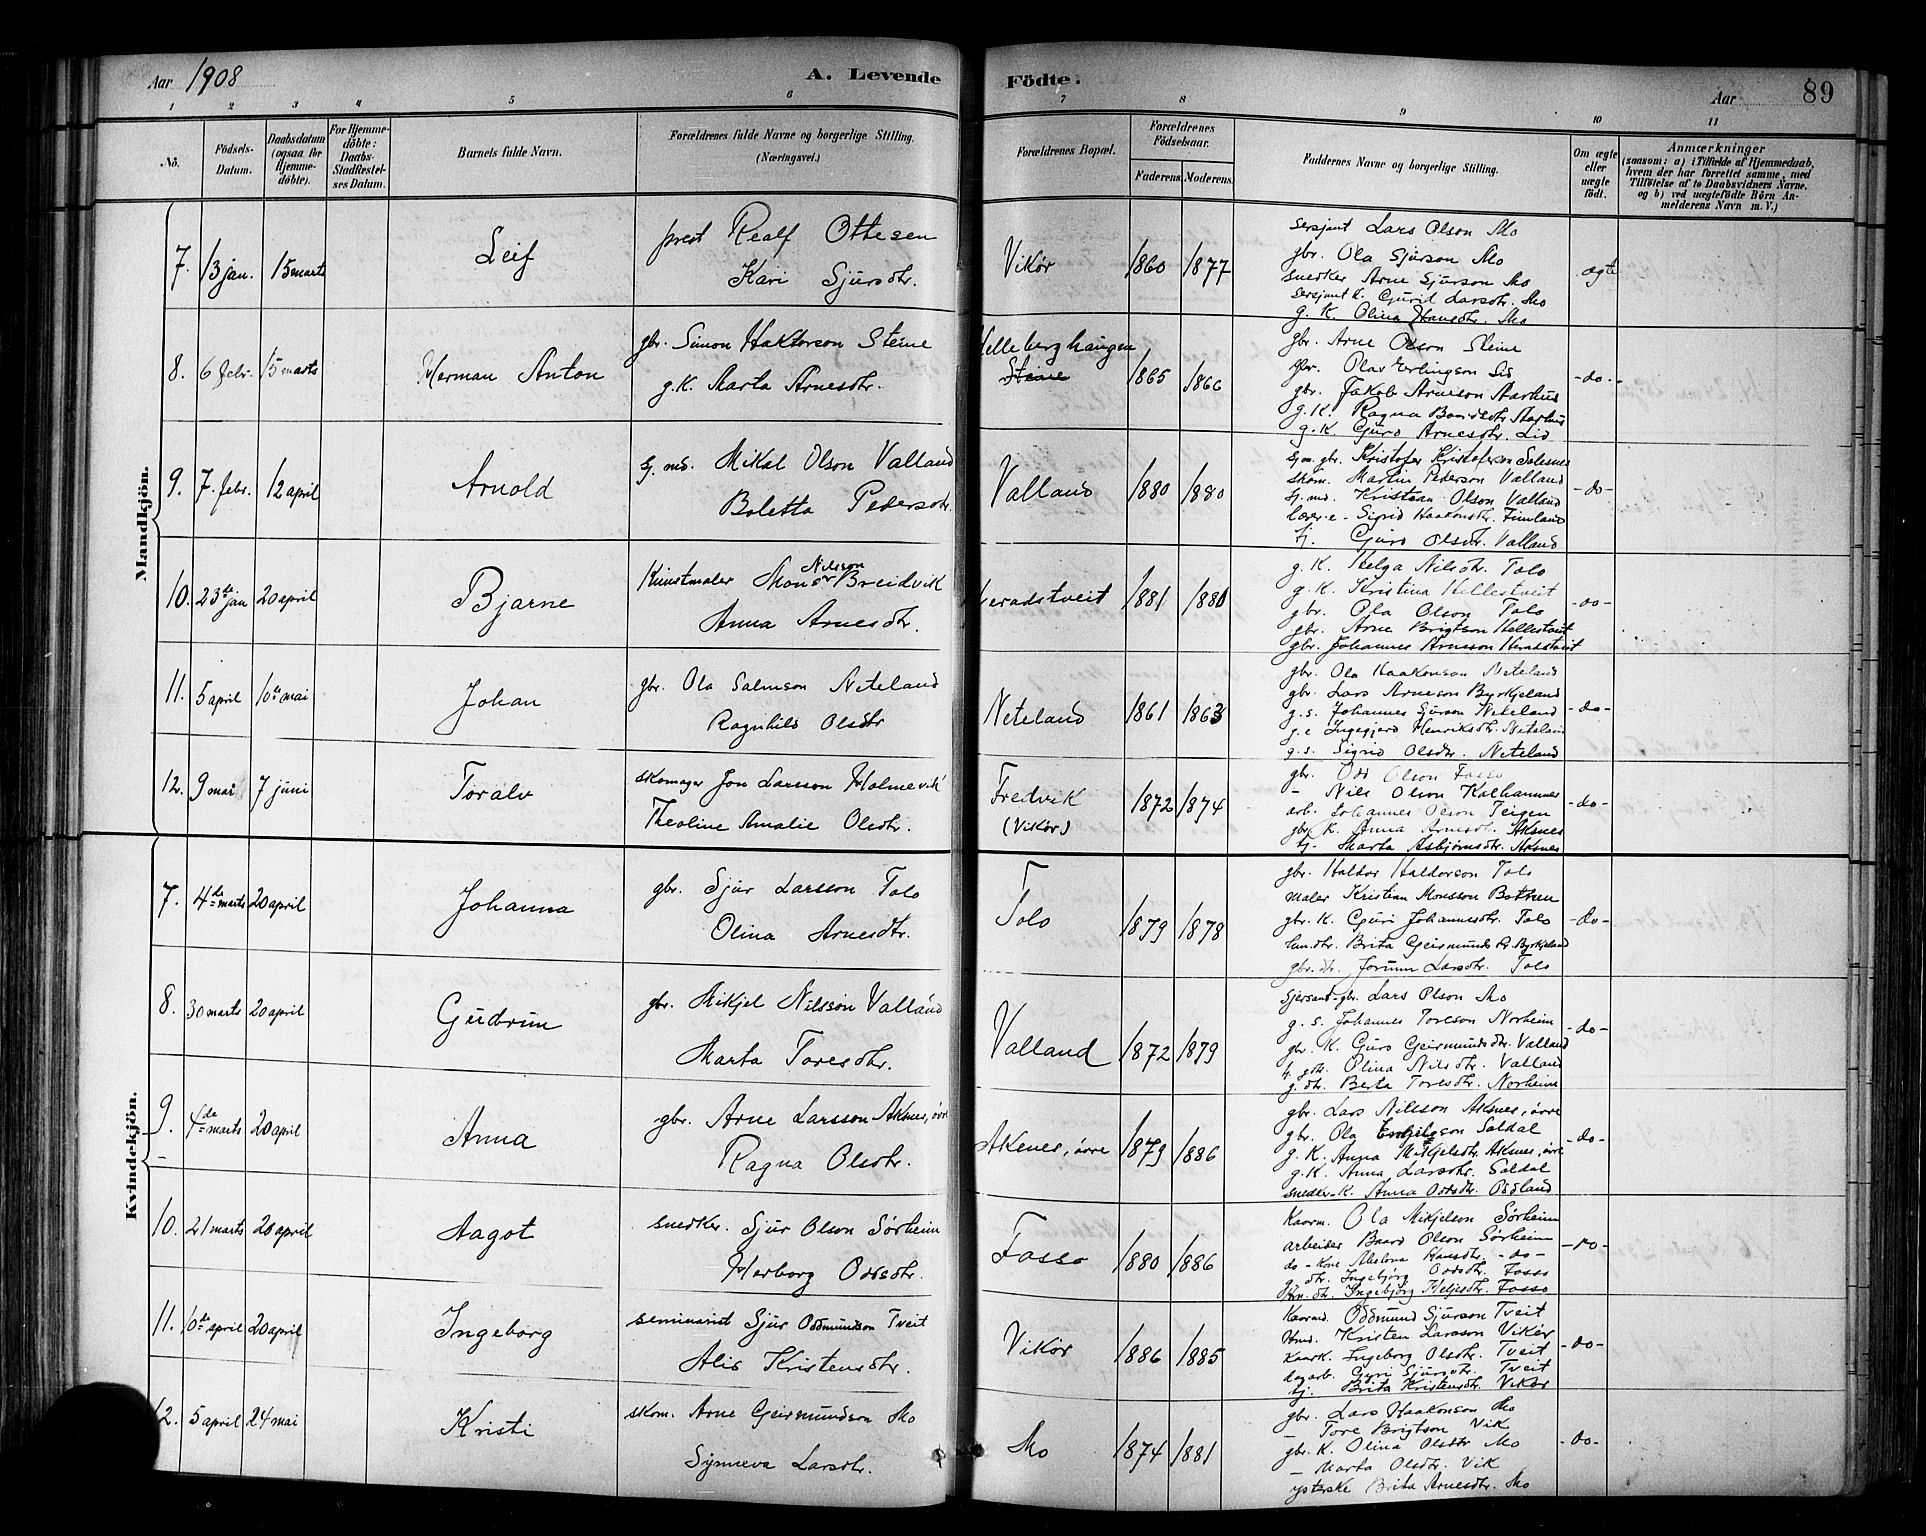 Aar 1908
A. Levende Födte.
Aar 89
1 2 3 4 5 6 7 8 9 10 11
No.
Födsels-Datum.
Daabsdatum (ogsaa for Hjemmedöbte).
For Hjemmedöbte: Daabs-Stadfæstelses Datum.
Barnets fulde Navn.
Forældrenes fulde Navne og borgerlige Stilling. (Næringsvei.)
Forældrenes Bopæl.
Forældrenes Födselsaar.
Faderens. Moderens.
Faddernes Navne og borgerlige Stilling.
Om ægte eller uægte födt.
Anmærkninger
(saasom: a) i Tilfælde af Hjemmedaab, hvem der har forrettet samme, med Tilföielse af to Daabsvidners Navne, og b) ved uægtefödte Börn Anmelderens Navn m. V.)
Mandkjön.
7. 13 jan. 15 marts Leif
prest Realf Ottesen
Kari Sjursdtr.
Vikör 1860 1877
sersjant Lars Olson Mo
gbr. Ola Sjurson Mo
snedker Arne Sjurson Mo
sersjant k. Gurid Larsdtr. Mo
g. k. Olina Hansdtr. Mo
ægte
8. 6 febr. 15 marts Herman Anton
gbr. Simon Haktorson Steine
g.k. Marta Arnesdtr.
Helleberghaugen
Steine
1865 1866
gbr. Arne Olson Steine
gbr. Olav Erlingson Lid
gbr. Jakob Arneson Aarhus
g.k. Ragna Bardsdtr. Aarhus
g.k. Guro Arnesdtr. Lid
- do -
9. 7. febr. 12 april Arnold
gj. md. Mikal Olson Valland
Boletta Pedersdtr.
Valland 1880 1880
gj.m. gbr. Kristofer Kristoferson Salesnes
skom. Martin Pederson Valland
gj. md. Kristian Olson Valland
lærer.e - Sigrid Haakonsdtr. Timland
tj. Guro Olsdtr. Valland
- do -
10. 23de jan 20 april Bjarne
Kunstmaler Mons Nilsson Breidvik
Anna Arnesdtr.
Heradstveit 1881 1880
g. k. Helga Nilsdtr. Tolo
g. k. Kristina Hellestveit
gbr. Ola Olson Tolo
gbr. Arne Brigtson Hellestveit
gbr. Johannes Arneson Heradstveit
- do -
11. 5 april 10de mai Johan
gbr. Ola Salmson Neteland
Ragnhild Olsdtr
Neteland 1861 1863
gbr. Ola Haakonson Neteland
gbr. Lars Arneson Byrkjeland
g. s. Johannes Sjurson Neteland
g. e Ingegjerd Henriksdtr. Neteland
g. s. Sigrid Olsdtr. Neteland
- do -
12. 9 mai 7 juni Toralv
skomager Jon Larsson Holmevik
Theoline Amalie Olsdtr.
Fredvik
(Vikör)
1872 1874
gbr. Odd Olson Fosso
- Nils Olson Kalhammer
arb. Johannes Olson Teigen
gbr. k. Anna Arnesdtr. Aksnes
tj. Marta Asbjörnsdtr. Aksnes
- do -
Kvindekjön.
7. 4de marts 20 april Johanna
gbr. Sjur Larsson Tolo
Olina Arnesdtr.
Tolo 1879 1878
gbr. Haldor Haldorson Tolo
maler Kristian Monsson Botnen
gbr. k. Guri Johannesdtr. Tolo
hm.dtr. Brita Geirmundsdtr. Byrkjeland
gbr. dtr. Jorunn Larsdtr. Tolo
- do -
8. 30 marts 20 april Gudrun
gbr. Mikjel Nilsson Valland
Marta Toresdtr.
Valland 1872 1879
Sjersant - gbr. Lars Olson Mo
g. s. Johannes Toreson Norheim
gbr. k. Guro Geirmundsdtr. Valland
Olina Nilsdtr. Valland
g. dtr. Berta Toresdtr. Norheim
- do -
9. 4de marts 20 april Anna
gbr. Arne Larsson Aksnes, övre
Ragna Olsdtr.
Aksnes, övre 1879 1886
gbr. Lars Nilsson Aksnes, övre
gbr. Ola Soldal
g. k. Anna Mikjelsdtr. Aksnes, övre
g. k. Anna Larsdtr. Soldal
snedker-k. Anna Oddsdtr. Oddland
- do -
10. 21 marts 20 april Aagot
snedker. Sjur Olson Sörheim
Herborg Oddsdtr.
Fosso 1880 1886
Kaarm. Ola Mikjelson Sörheim
arbeider Baard Olson Sörheim
do - kone Abselona Hansdtr. - do -
g. dtr. Ingebjörg Oddsdtr. Fosso
Ingebjörg Heljesdtr. Fosso
- do -
11. 10de april 20 april Ingeborg
seminarist Sjur Oddmundson Tveit
Alis Kristensdtr.
Vikör 1886 1885
Kaarmd. Oddmund Sjurson Tveit
Hmd. Kristen Larsson Vikör
Kaark. Ingeborg Olsdtr. Tveit
dagarb. Guri Sjursdtr. Tveit
tj. Brita Kristensdtr. Vikör
- do -
12. 5 april 24 mai Kristi
skom. Arne Geirmundson Mo
Synneva Larsdtr.
Mo 1874 1881
gbr. Lars Haakonson Mo
- Tore Brigtson Vik
gbr. k. Olina Olsdtr Mo
- Marta Olsdtr. Vik
ysterske Brita Arnesdtr. Mo
- do -